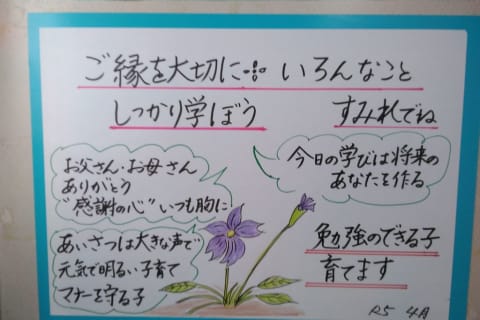 ご縁を大切に… いろんなこと
しっかり学ぼう すみれでね
お父さん・お母さん
ありがとう
"感謝の心"いつも胸に
今日の学びは将来の
あなたを作る
あいさつは大きな声で
元気で明るい子育て
マナーを守る子
勉強のできる子
育てます
R5 4月